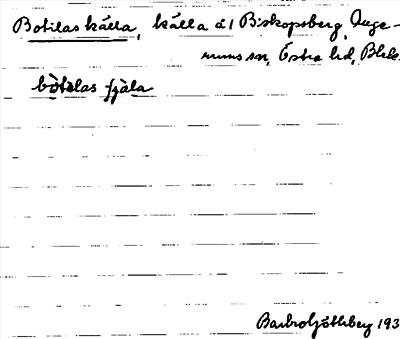 Botilas källa, källa å 1 Biskopsberg, Inge-
rums sn, Östra hd, Blek.
bòtelas fjàla
Barbro Göthberg 193